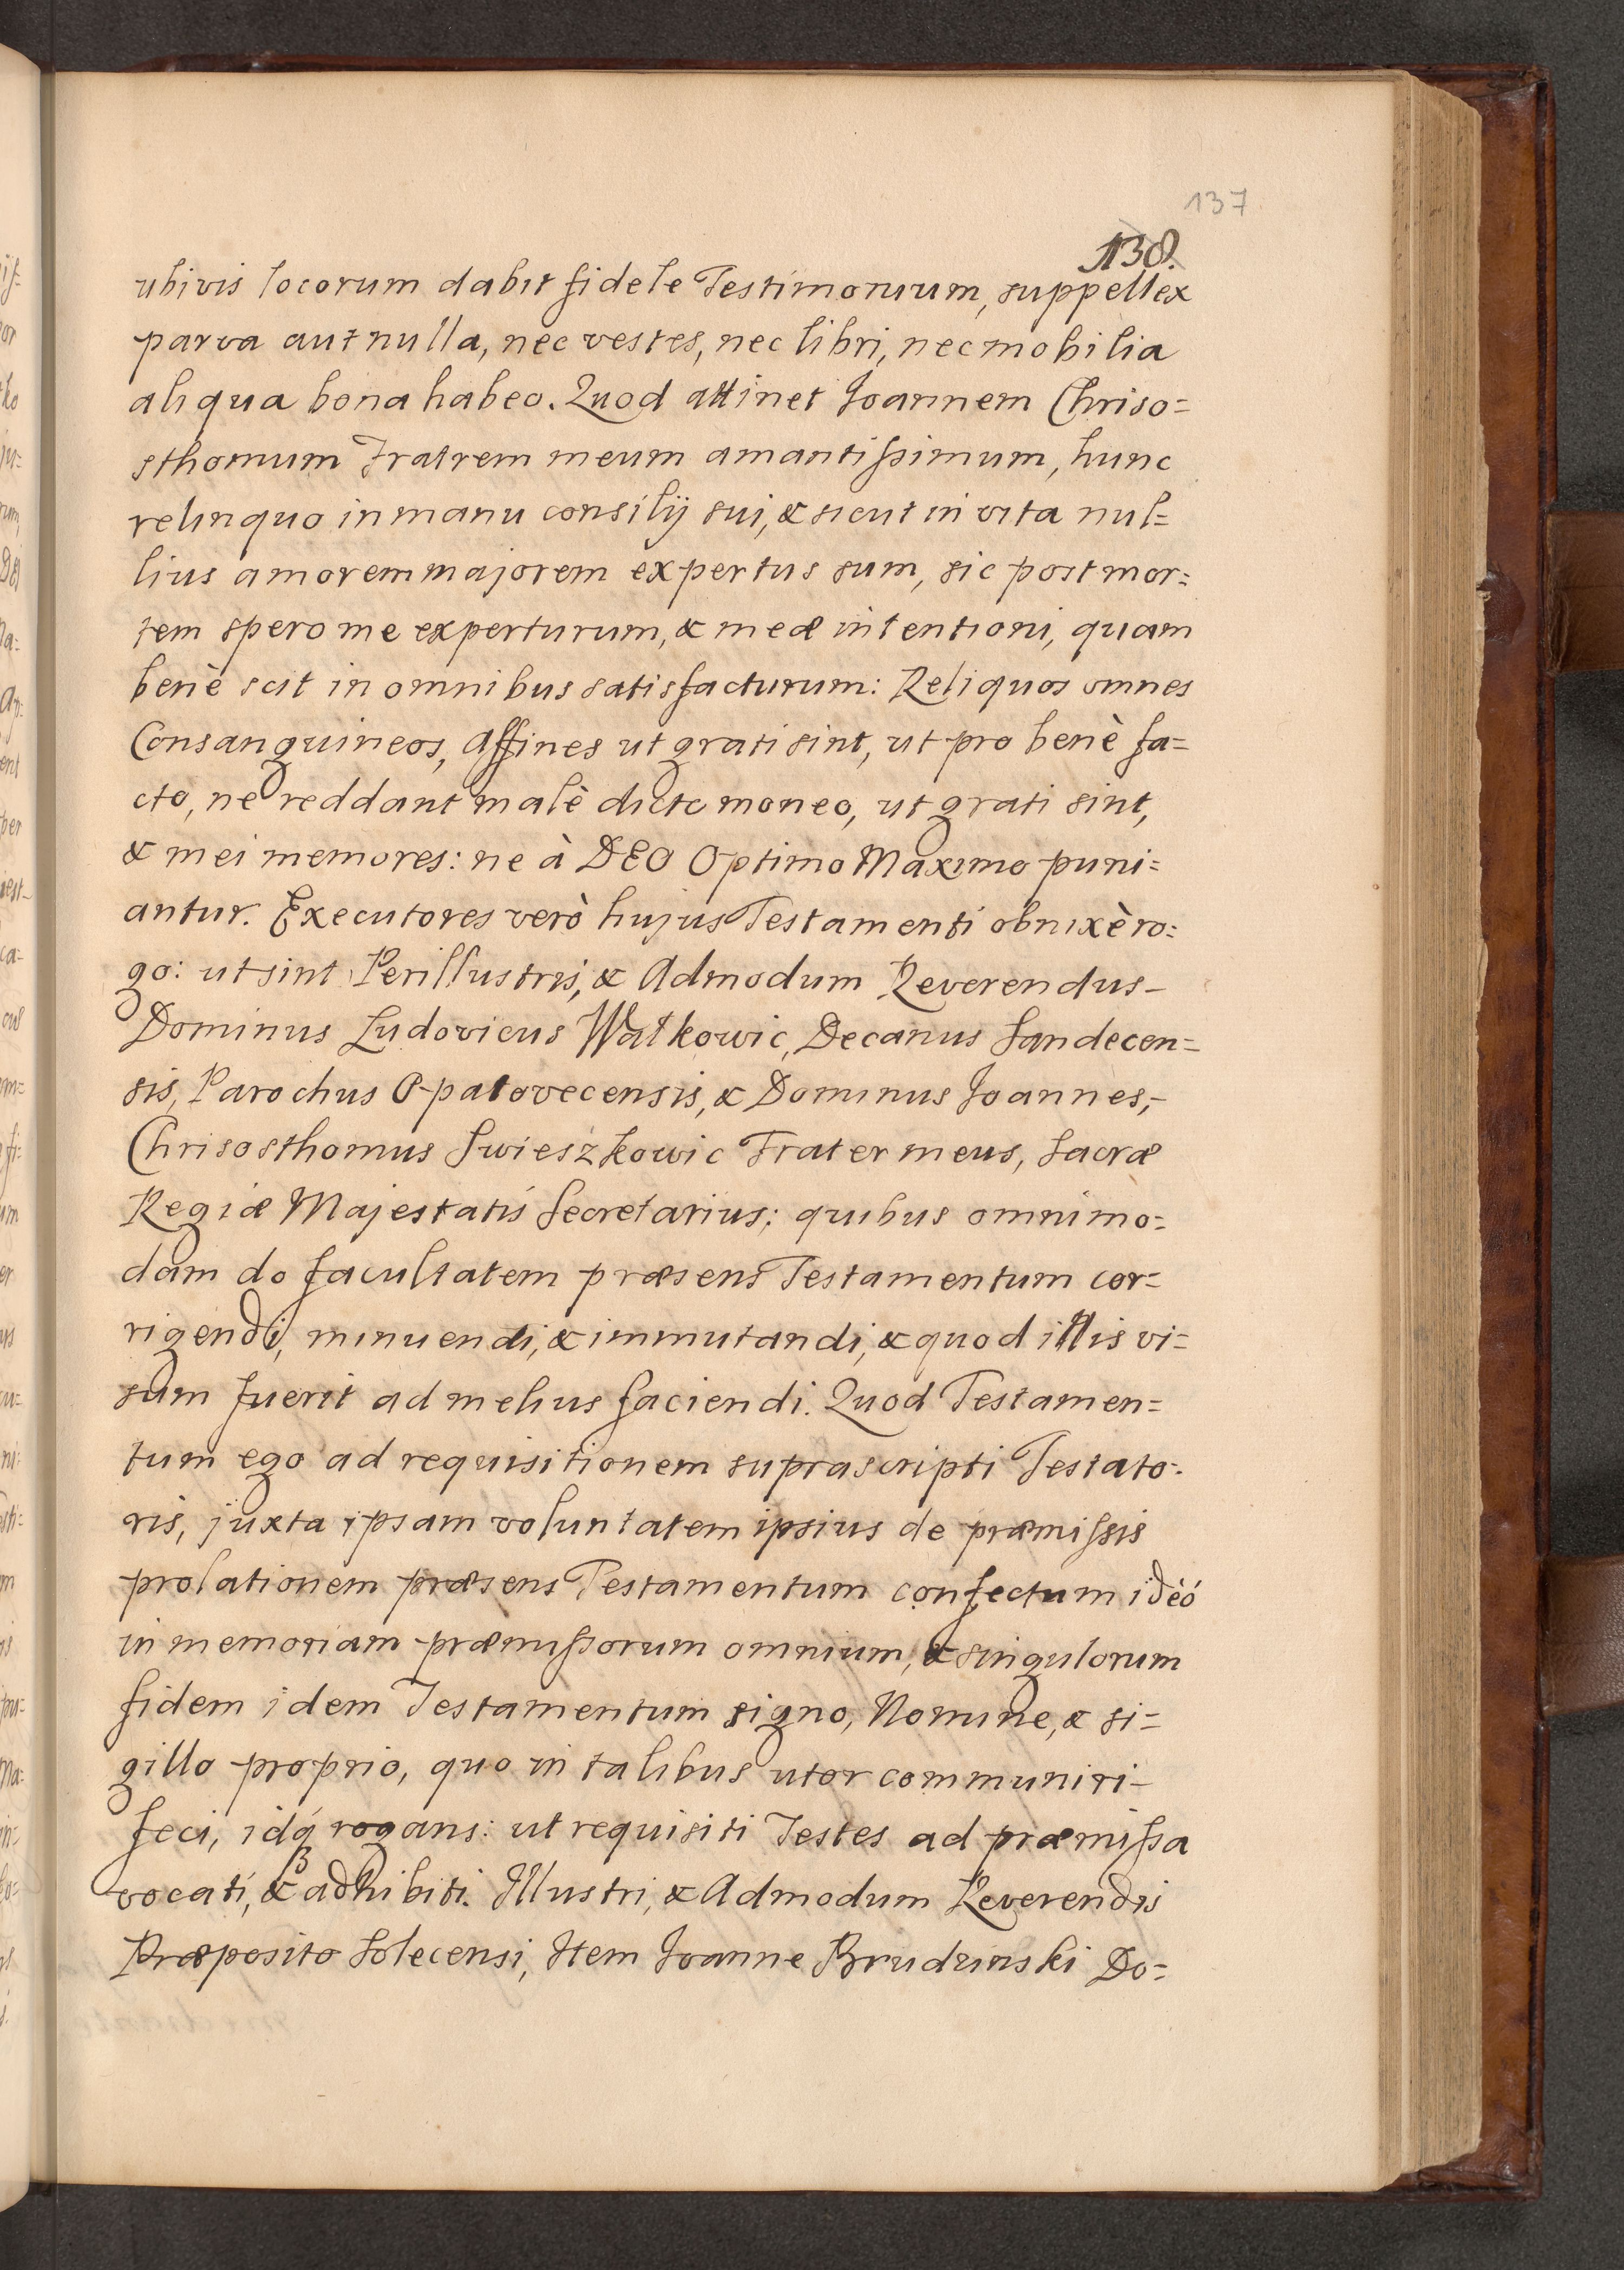 137
138.
ubivis locorum dabit fidele Testimonium, suppellex
parva aut nulla, nec vestes, nec libri, nec mobilia
aliqua bona habeo. Quod attinet Joannem Chriso=
sthomum Fratrem meum amantissimum, hunc
relinquo in manu consilij sui, & sicut in vita nul=
lius amorem majorem expertus sum, sic post mor=
tem spero me experturum, & meæ intentioni, quam
benè scit in omnibus satisfacturum: Reliquos omnes
Consanguineos, Affines ut grati sint, ut pro benè fa=
cto, ne reddant malè dicto moneo, ut grati sint,
& mei memores: ne à DEO Optimo Maximo puni=
antur. Executores verò hujus Testamenti obnixè ro=
go: ut sint Perillustris, & Admodum Reverendus-
Dominus Ludovicus Watkowic, Decanus Sandecen=
sis, Parochus Opatovecensis, & Dominus Joannes,-
Chrisosthomus Swieszkowic Frater meus, Sacræ
Regiæ Majestatis Secretarius; quibus omnimo=
dam do facultatem præsens Testamentum cor=
rigendi, minuendi, & immutandi, & quod illis vi=
sum fuerit ad melius faciendi. Quod Testamen=
tum ego ad requisitionem suprascripti Testato=
ris, juxta ipsam voluntatem ipsius de præmissis
prolationem præsens Testamentum confectum ideò
in memoriam præmissorum omnium, & singulorum
fidem idem Testamentum signo, Nomine, & si=
gillo proprio, quo in talibus utor communiri-
feci, idq́ rogans: ut requisiti Testes ad præmissa
vocati, & adhibiti. Illustri, & Admodum Reverendis
Præposito Solecensi, Item Joanne Brudzinski Do=